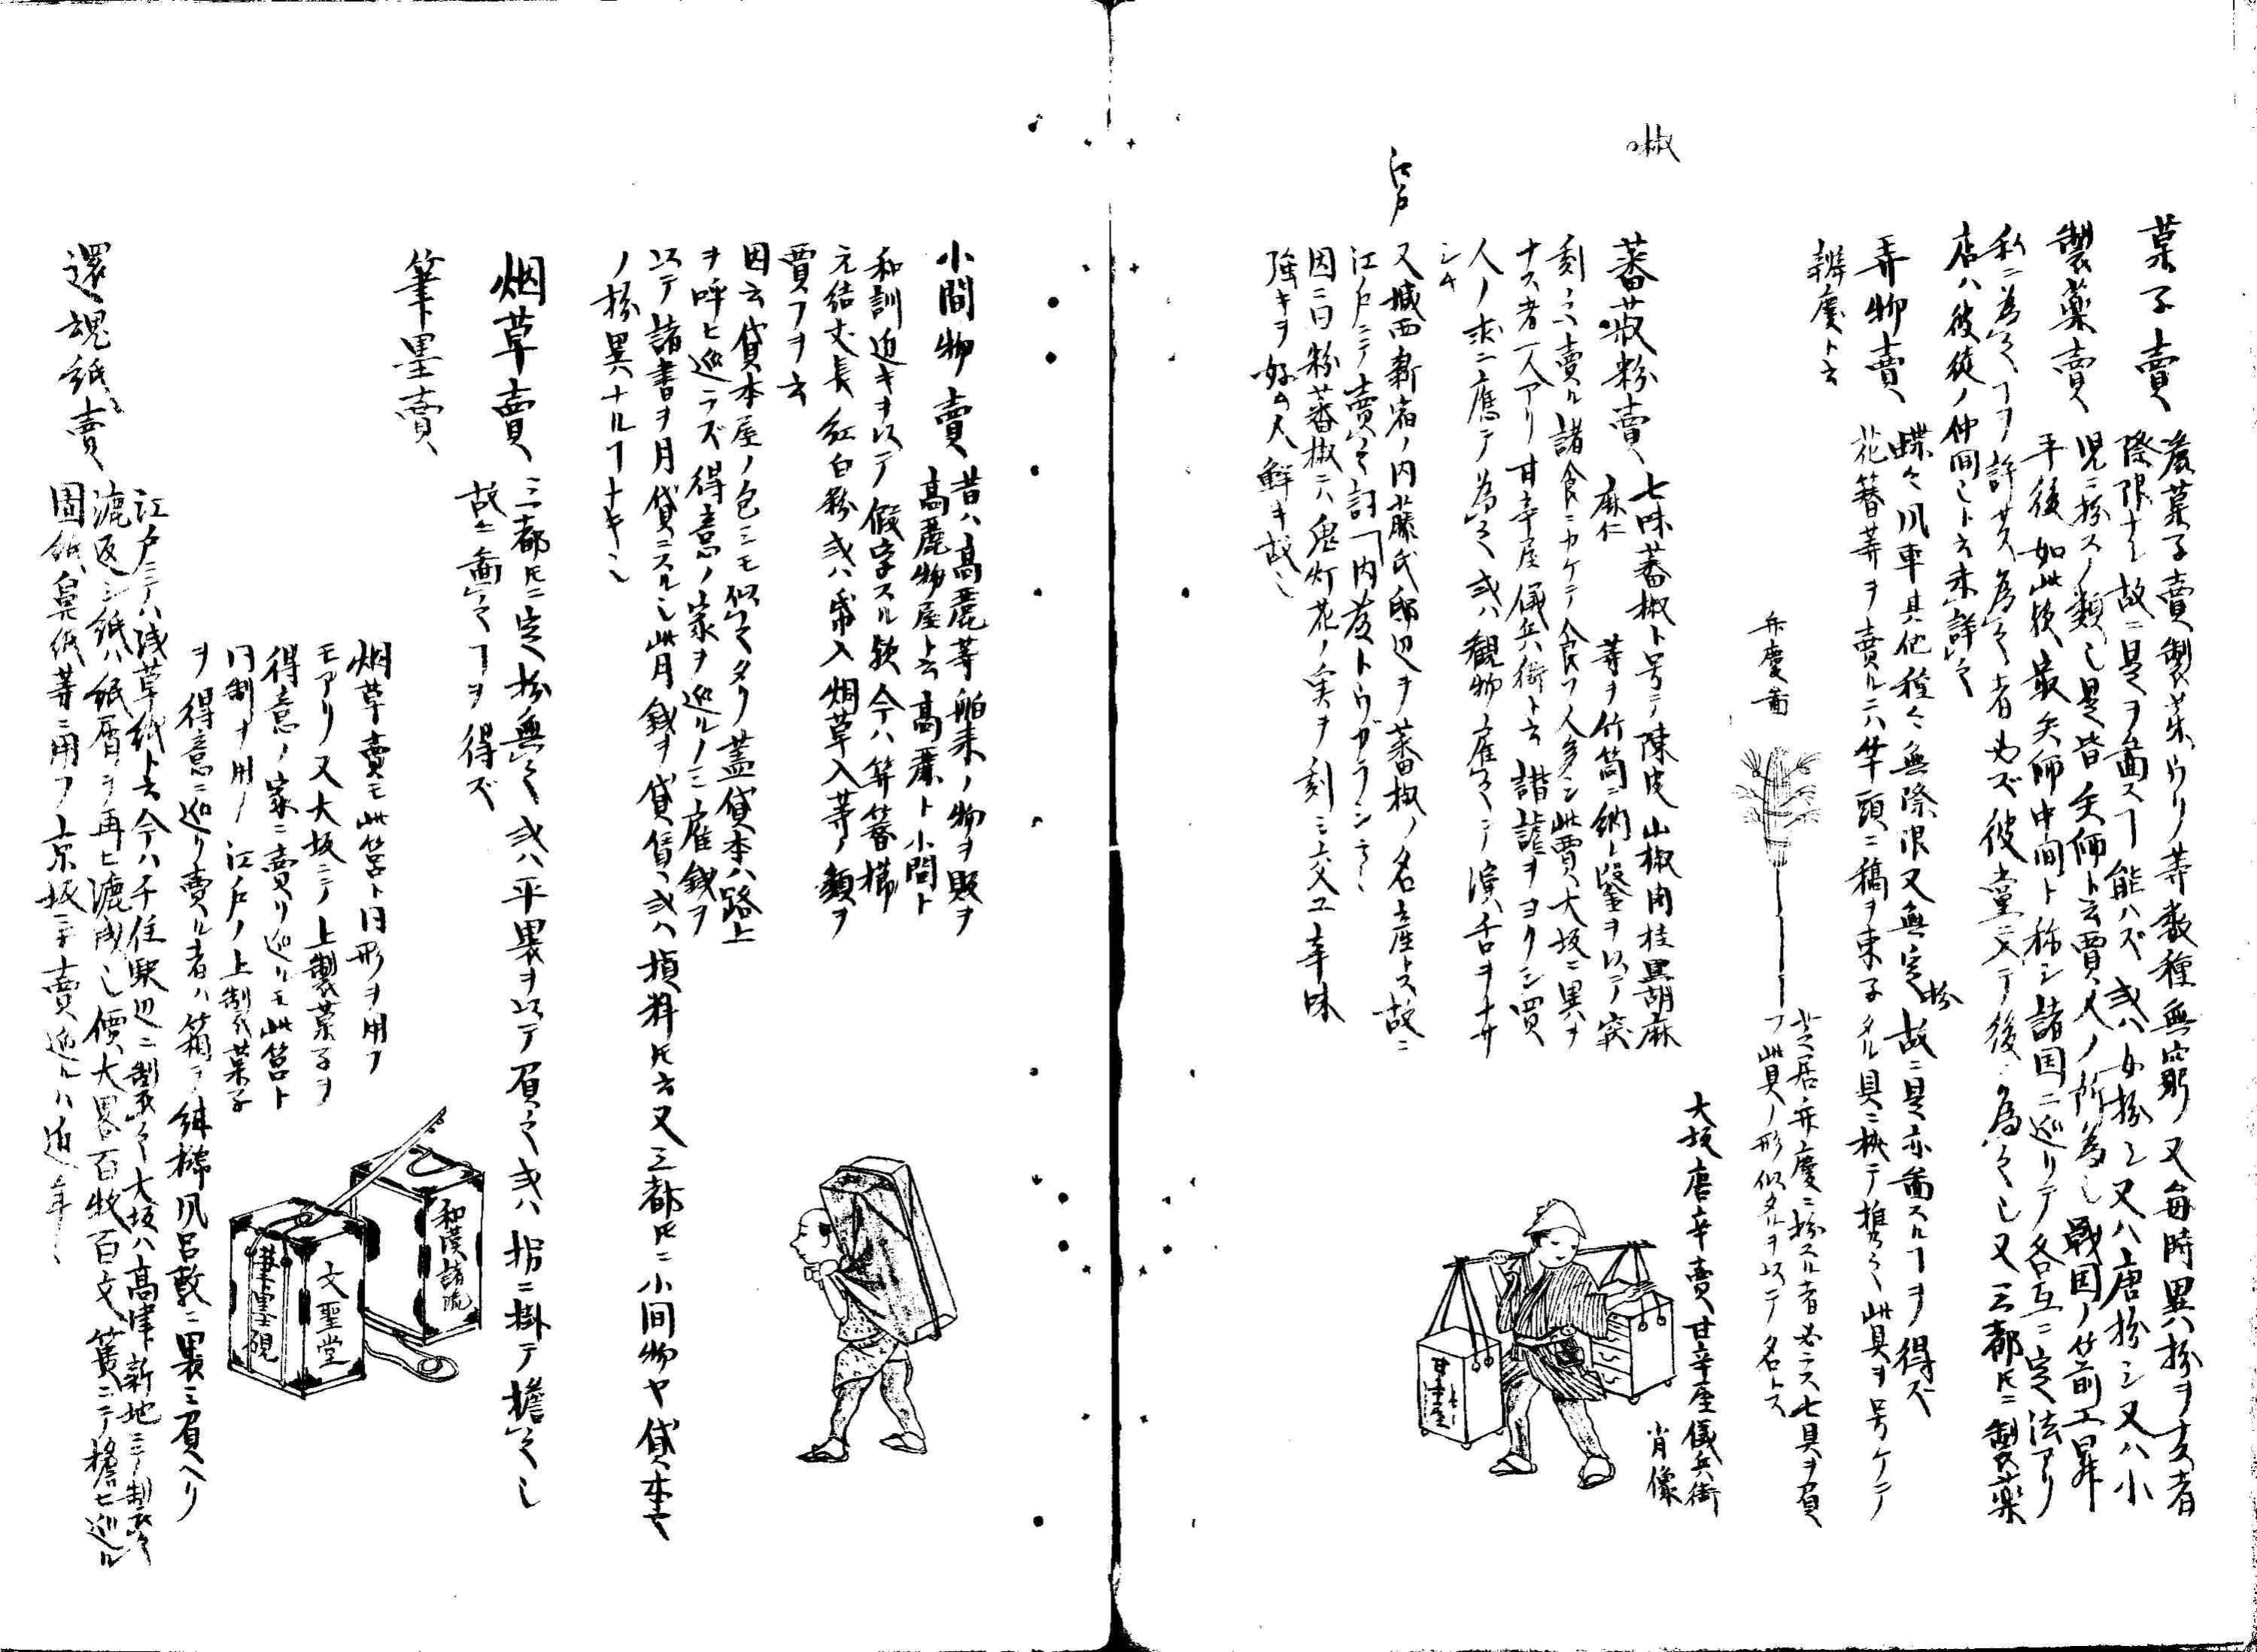 菓子賣
菓子賣製菓ウリ等数種無窮又毎時異扮ヲ又者
際限ナシ故ニ是ヲ畫スヿ能ハズ或ハ女扮シ又ハ唐扮シ又ハ小
児ニ扮スノ類也是皆矢師ト云賈人ノ所為也戦国ノ
製薬賣
手後如此矢師中間ト称シ諸国ニ巡リテ各互ニ定法アリ
私ニ為之ヿヲ許サス為之者必ズ彼黨ニ入テ後ニ為之也又三都トモニ製薬
店ハ彼徒ノ仲間也ト云未詳之
弄物賣
蝶々風車其他種々無際限又無定扮故ニ是亦畫スルヿヲ得ズ
花簪等ヲ賣ルニハ竿頭ニ稿ヲ束子タル具ニ挾テ携之此具ヲ号ケテ
辨慶ト云
弁慶畫
芝居弁慶ニ扮スル者必ラス七具ヲ負
フ此具ノ形似タルヲ以テ名トス
大坂唐辛賣甘辛屋儀兵衛
肖像
椒
蕃椒粉賣
七味蕃椒ト号テ陳皮山椒肉桂黒胡麻
麻仁
等ヲ竹筒ニ納ト鑿ヲ以テ突
刻之賣ル諸食ニカケテ食フ人多シ此賈大坂ニ異ヲ
ナス者一人アリ甘辛屋儀兵衛ト云諧謔ヲヨクシ買
人ノ求ニ應テ為之或ハ観物ニ雇之テ演舌ヲナサ
シム
江戸
又城西新宿ノ内藤氏邸辺ヲ蕃椒ノ名産トス故ニ
江戸ニテ賣之詞「内藤トウガラシ云々
因ニ曰粉蕃椒ニハ鬼灯花ノ実ヲ刻ミ交ユ辛味
強キヲ好ム人鮮キ故也
小間物賣
昔ハ高麗等舶来ノ物ヲ販ヲ
高麗物屋ト云高麗ト小間ト
和訓近キヲ以テ假字スル歟今ハ笄簪櫛
元結丈長紅白粉或ハ帋入烟草入等ノ類ヲ
賣フヲ云
因云貸本屋ノ包シモ似之タリ蓋貸本ハ路上
ヲ呼ヒ巡ラズ得意ノ家ヲ巡ルノミ雇銭ヲ
以テ諸書ヲ月貸ニスル也此月銭ヲ貸賃或ハ損料トモ云又三都トモニ小間物ヤ貸本ヤ
ノ扮異ナルヿナキ也
烟草賣
三都トモニ定扮無之或ハ平裹ヲ以テ負之或ハ枴ニ掛テ擔之也
故ニ畫之ヿヲ得ズ
筆墨賣
烟草賣モ此筥ト同形ヲ用フ
モアリ又大坂ニテ上製菓子ヲ
得意ノ家ニ賣リ巡ルモ此筥ト
同制ヲ用ノ江戸ノ上製菓子
ヲ得意ニ巡リ賣ル者ハ箱ヲ
風呂敷ニ裹ミ負ヘリ
和漢諸流
文聖堂
筆墨硯
還魂紙賣
江戸ニテハ浅草紙ト云今ハ千住駅辺ニ製之大坂ハ高津新地ニテ製之
漉返シ紙ハ紙屑ヲ再ヒ漉成也價大畧百枚百文籠ニテ擔ヒ巡ル
圊紙鼻紙等ニ用フ京坂ニテ賣巡ルハ近年也